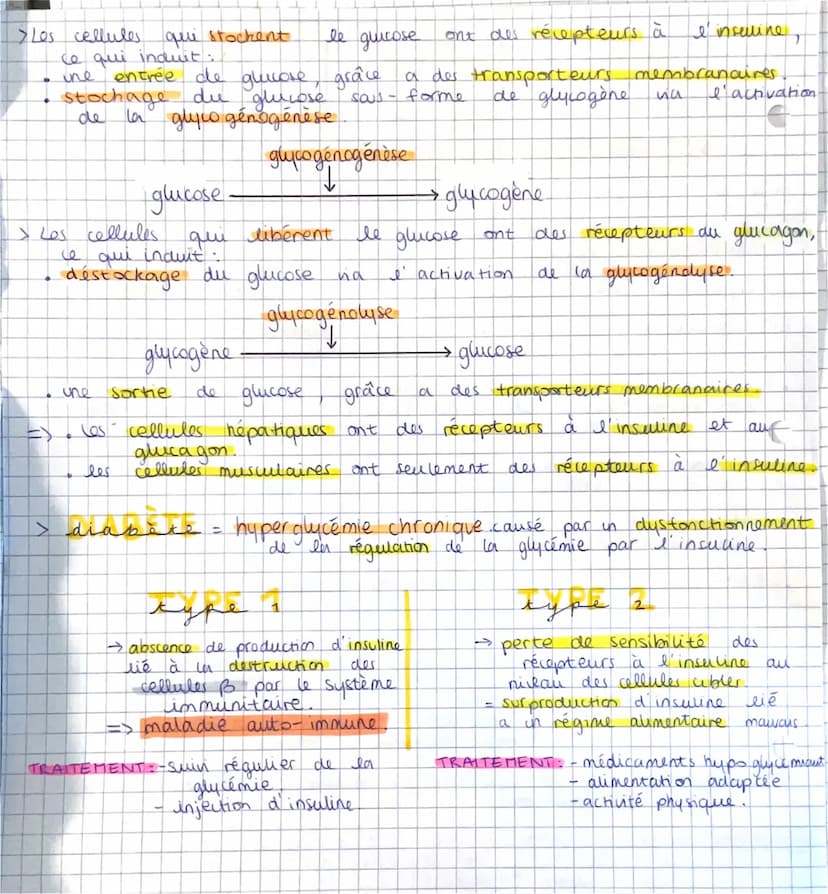 >Les cellules qui stockent le glucose ont des récepteurs à l'insuline,
ce qui induit :
• une entrée de glucose, grâce a des transporteurs membranaires.
• stockage du glucose sous-forme de glycogène via l'activation
de la glycogénogénèse
glycogénogénèse
glucose → glycogène
> Les cellules qui libérent le glucose ont des récepteurs au glucagon,
ce qui induit :
• déstockage du glucose via l'activation de la glycogénolyse.
glycogénolyse
glycogène → glucose
• une sortie de glucose, grâce a des transporteurs membranaires.
=> • les cellules hépatiques ont des récepteurs à l'insuline et au
glucagon.
• les cellules musculaires ont seulement des récepteurs à l'insuline.
> DIABÈTE = hyperglycémie chronique causé par un dysfonctionnement
de la régulation de la glycémie par l'insuline.
TYPE 1
→ abscence de production d'insuline
lié à la destruction des
cellules β par le système
immunitaire.
=> maladie auto-immune.
TRAITEMENT : - suivi régulier de la
glycémie
- injection d'insuline
TYPE 2
→ perte de sensibilité des
récepteurs à l'insuline au
niveau des cellules cibles
= surproduction d'insuline lié
a un régime alimentaire mauvais
TRAITEMENT : - médicaments hypoglycémiant
- alimentation adaptée
- activité physique.